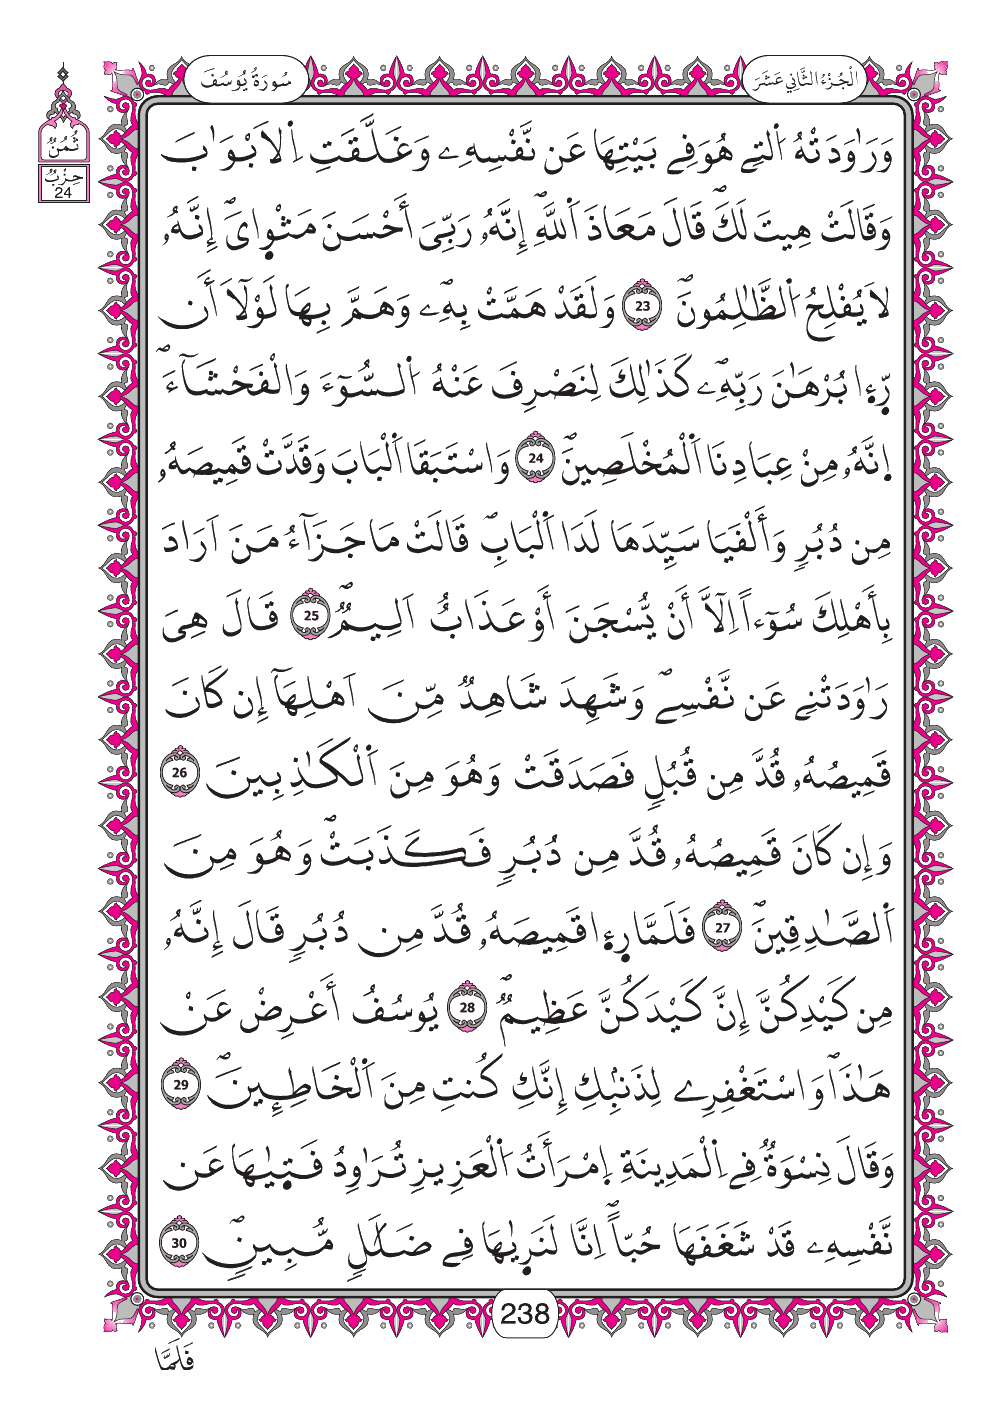 سُورَةُ يُوسُفَ
الْجُزْءُ الثَّانِي عَشَرَ
ثُمُنٌ
حِزْبٌ
24
وَرَٰوَدَتْهُ اُ۬لتِے هُوَ فِے بَيْتِهَا عَن نَّفْسِهِۦ وَغَلَّقَتِ اِ۬لَابْوَٰبَ
وَقَالَتْ هِيتَ لَكَۖ قَالَ مَعَاذَ اَ۬للَّهِۖ إِنَّهُۥ رَبِّيَ أَحْسَنَ مَثْو۪ايَۖ إِنَّهُۥ
لَا يُفْلِحُ اُ۬لظَّٰلِمُونَۖ 23 وَلَقَدْ هَمَّتْ بِهِۦۖ وَهَمَّ بِهَا لَوْلَآ أَن
رّ۪ء۪ا بُرْهَٰنَ رَبِّهِۦۖ كَذَٰلِكَ لِنَصْرِفَ عَنْهُ اُ۬لسُّوٓءَ وَالْفَحْشَآءَۖ
اِنَّهُۥ مِنْ عِبَادِنَا اَ۬لْمُخْلَصِينَۖ 24 وَاسْتَبَقَا اَ۬لْبَابَ وَقَدَّتْ قَمِيصَهُۥ
مِن دُبُرٍ وَأَلْفَيَا سَيِّدَهَا لَدَا اَ۬لْبَابِۖ قَالَتْ مَا جَزَآءُ مَنَ اَرَادَ
بِأَهْلِكَ سُوٓءاً اِلَّآ أَنْ يُّسْجَنَ أَوْ عَذَابٌ اَلِيمٌۖ 25 قَالَ هِيَ
رَٰوَدَتْنِے عَن نَّفْسِےۖ وَشَهِدَ شَاهِدٌ مِّنَ اَهْلِهَآ إِن كَانَ
قَمِيصُهُۥ قُدَّ مِن قُبُلٍ فَصَدَقَتْ وَهُوَ مِنَ اَ۬لْكَٰذِبِينَ 26
وَإِن كَانَ قَمِيصُهُۥ قُدَّ مِن دُبُرٍ فَكَذَبَتْۖ وَهُوَ مِنَ
اَ۬لصَّٰدِقِينَۖ 27 فَلَمَّا ر۪ء۪ا قَمِيصَهُۥ قُدَّ مِن دُبُرٍ قَالَ إِنَّهُۥ
مِن كَيْدِكُنَّ إِنَّ كَيْدَكُنَّ عَظِيمٌۖ 28 يُوسُفُ أَعْرِضْ عَنْ
هَٰذَاۖ وَاسْتَغْفِرِے لِذَنۢبِكِ إِنَّكِ كُنتِ مِنَ اَ۬لْخَاطِـِٕينَۖ 29
وَقَالَ نِسْوَةٌ فِے اِ۬لْمَدِينَةِ اِ۪مْرَأَتُ اُ۬لْعَزِيزِ تُرَٰوِدُ فَت۪يٰهَا عَن
نَّفْسِهِۦ قَدْ شَغَفَهَا حُبّاًۖ اِنَّا لَنَر۪يٰهَا فِے ضَلَٰلٍ مُّبِينٍۖ 30
238
فَلَمَّا